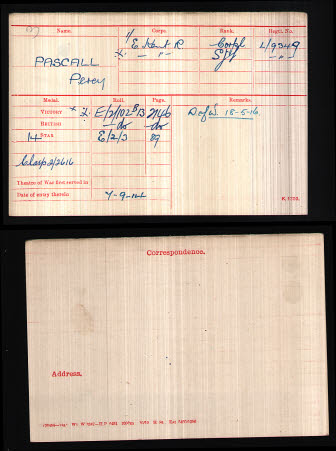 Name. Corps. Rank. Regtl. No.
PASCALL 1/ E. Kent R Corpl L/9349
X. — " — Sjt — " —
Percy
Medal. Roll. Page. Remarks.
VICTORY * X. E/2/102B13 2146 D of W. 18-5-16.
BRITISH — do — do
14 STAR E/2/3 89
Clasp 2/2616
Theatre of War first served in
Date of entry therein 7-9-14
K.1380.
Correspondence.
Address.